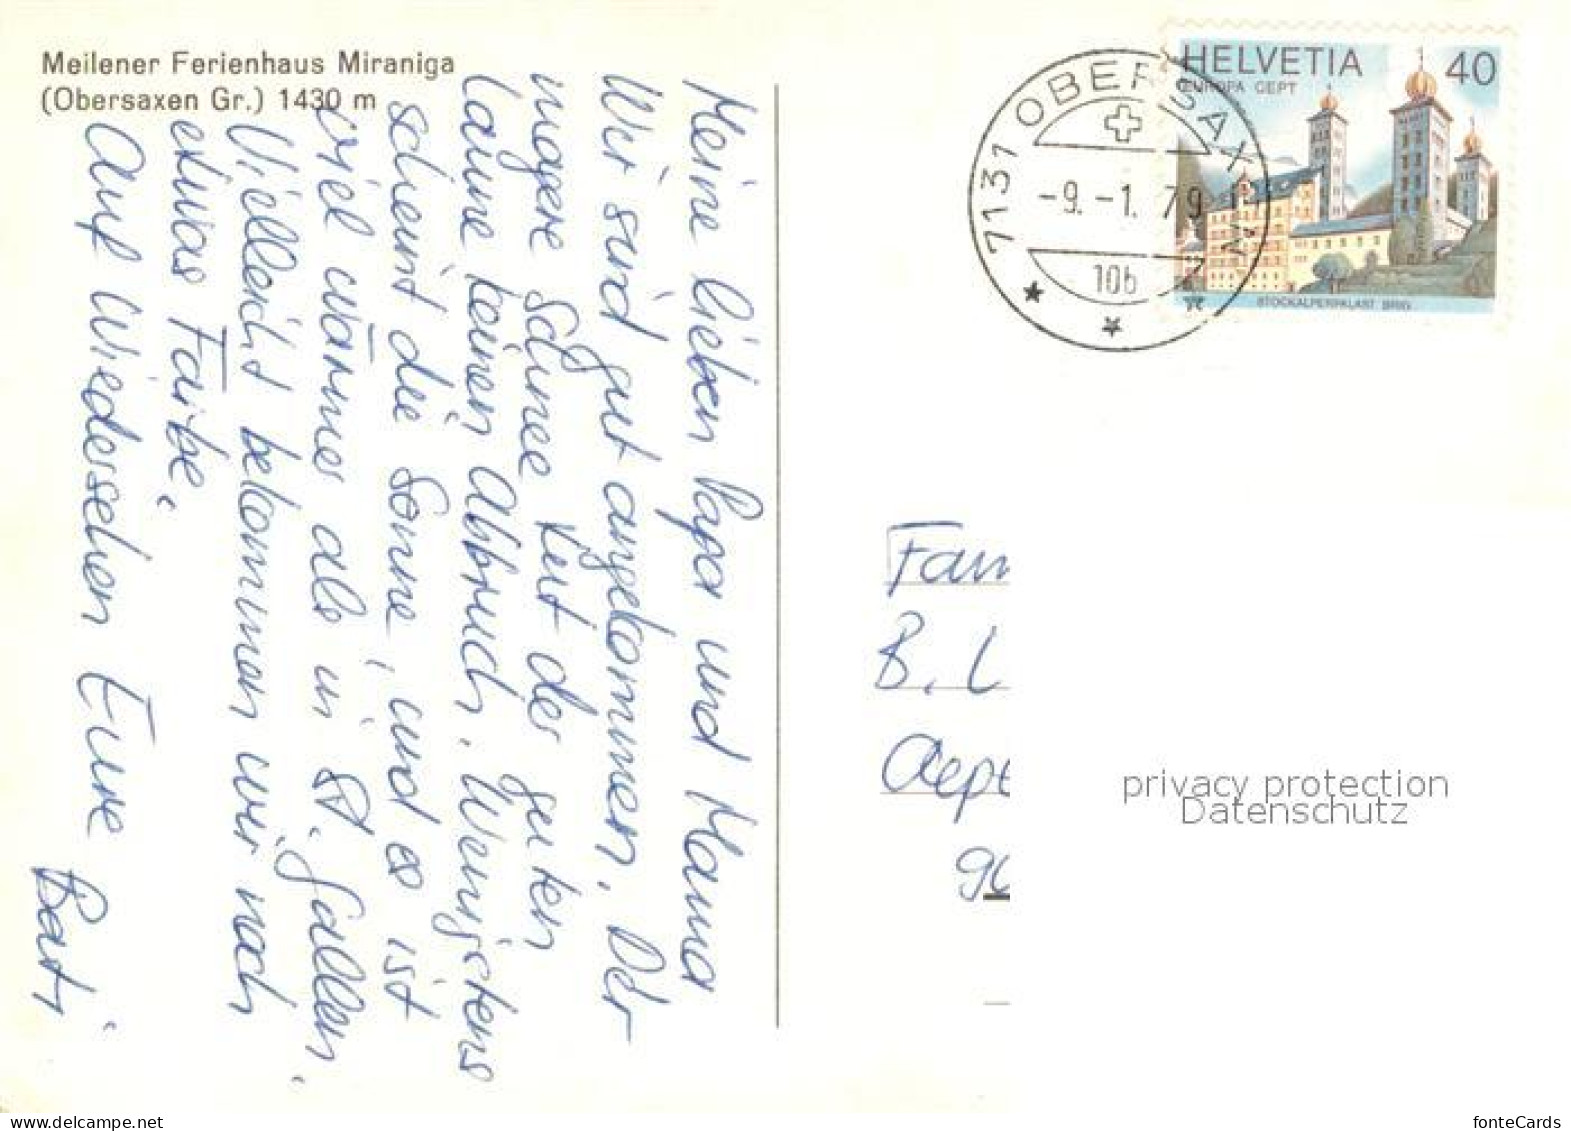 Meilener Ferienhaus Miraniga
(Obersaxen Gr.) 1430 m
Meine lieben Papa und Mama
Wir sind gut angekommen. Der
magere Schnee tut der guten
Laune keinen Abbruch. Wenigstens
scheint die Sonne, und es ist
viel wärmer als in St. Gallen.
Vielleicht bekommen wir noch
etwas Farbe.
Auf Wiedersehen Eure
HELVETIA 40
EUROPA CEPT
STOCKALPERPALAST BRIG
7131 OBERSAXEN
-9.-1.79
Fam
B. L
Aepe
90
privacy protection
Datenschutz
fonteCards